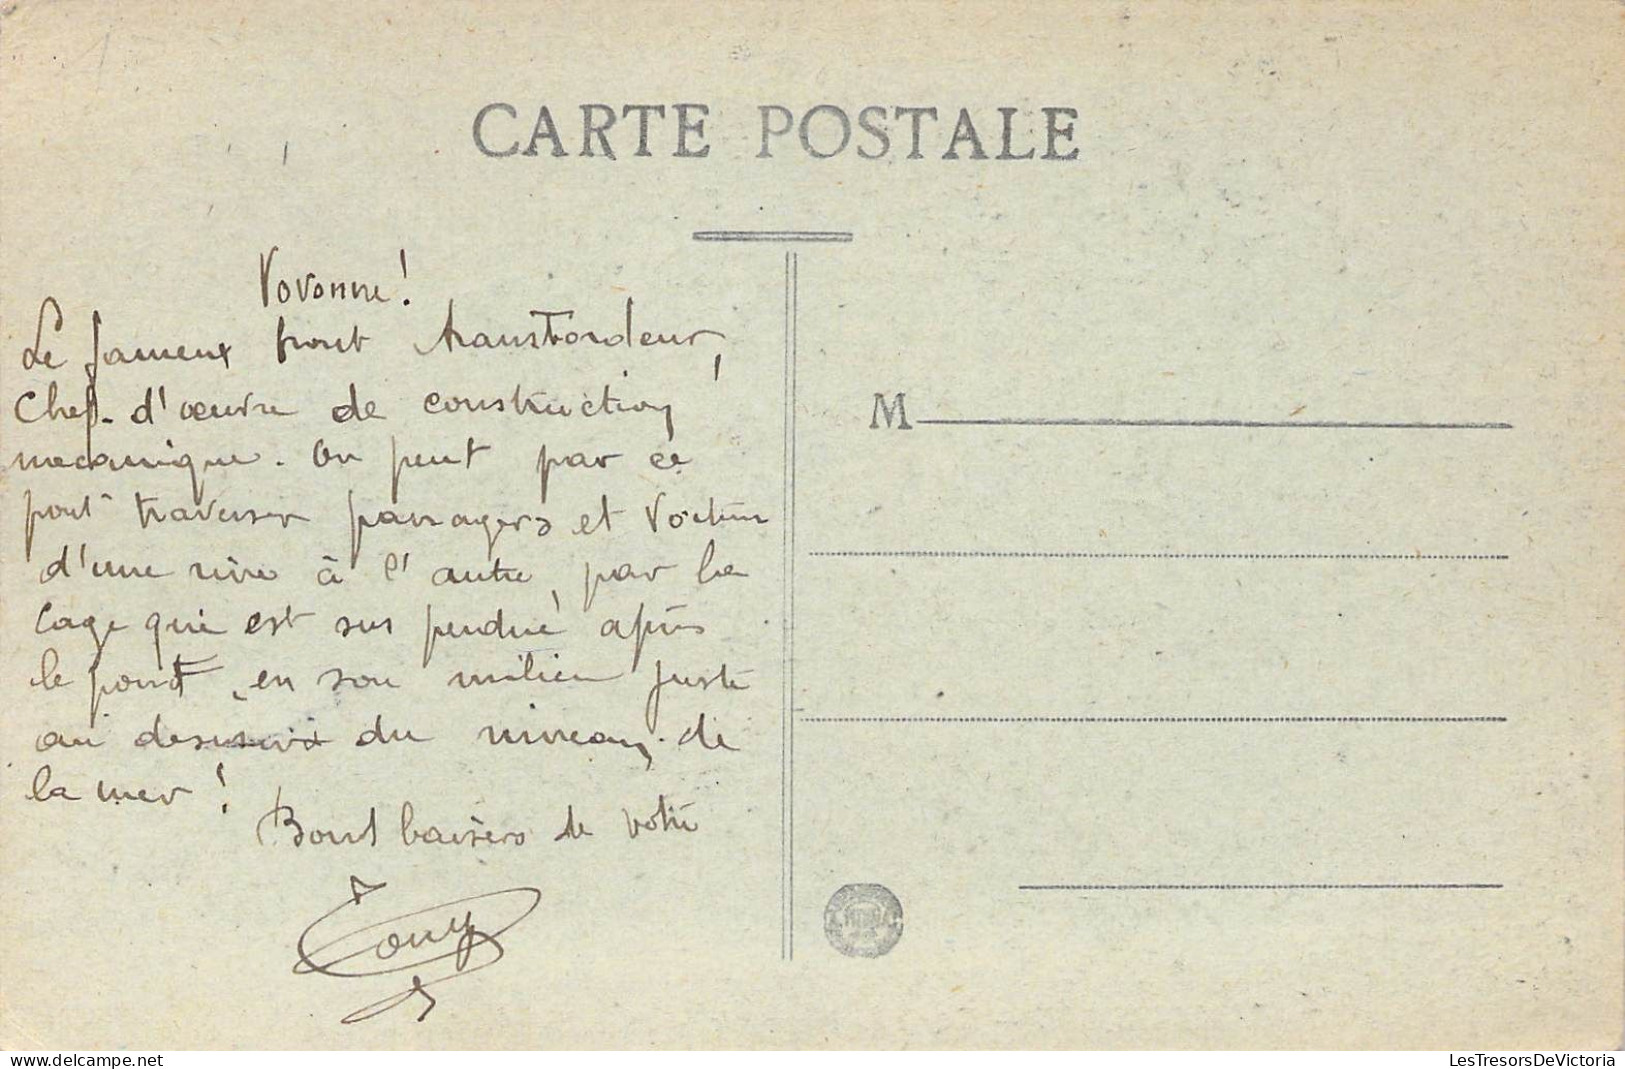 CARTE POSTALE
Vovonne!
Le fameux pont transbordeur,
Chef-d'œuvre de construction
mecanique. On peut par ce
pont traverser passagers et Voiture
d'une rive à l'autre, par la
Cage qui est sus pendue après
le pont, en son milieu juste
au dessus du niveau de
la mer!
Bons baisers de votre
Tony
M
LesTresorsDeVictoria